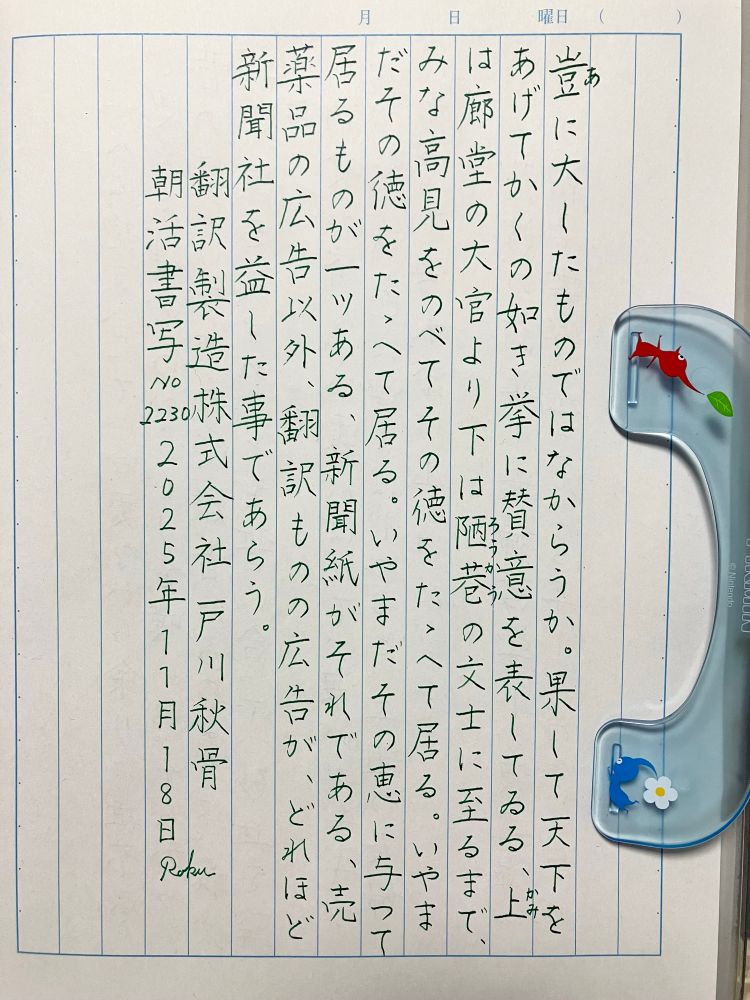 月　日　曜日（　）
豈に大したものではなからうか。果して天下を
あ
あげてかくの如き挙に賛意を表してゐる、上
かみ
は廊堂の大官より下は陋巷の文士に至るまで、
ろうかう
みな高見をのべてその徳をたゝへて居る。いやま
だその徳をたゝへて居る。いやまだその恵に与つて
居るものが一ツある、新聞紙がそれである、売
薬品の広告以外、翻訳ものの広告が、どれほど
新聞社を益した事であらう。
翻訳製造株式会社 戸川秋骨
朝活書写No2230 2025年11月18日 Roku
© Nintendo